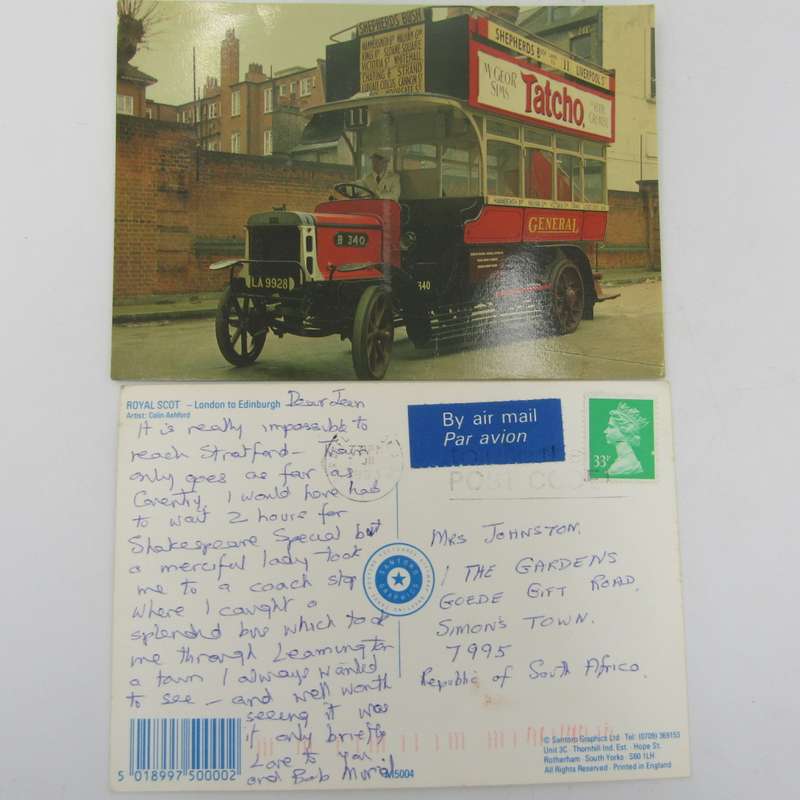 SHEPHERDS BUSH
HAMMERSMITH BY WALHAM GRN
KINGS RD SLOANE SQUARE
VICTORIA ST WHITEHALL
CHARING X STRAND
LUDGATE CIRCUS CANNON ST
SHEPHERDS BUSH 11 LIVERPOOL ST
GEOR
SIMS
Tatcho.
11
GENERAL
B 340
LA 9928
340
ROYAL SCOT – London to Edinburgh
Artist: Colin Ashford
Dear Jean
It is really impossible to
reach Stratford – Train
only goes as far as
Coventry, I would have had
to wait 2 hours for
Shakespeare Special but
a merciful lady took
me to a coach stop
where I caught a
splendid bus which took
me through Leamington
a town I always wanted
to see – and well worth
seeing it was
if only briefly
Love to you
and Bob Muriel
5 018997 500002
M5004
By air mail
Par avion
33P
POST CODE
SANTORO
GRAPHICS
MRS JOHNSTON.
1 THE GARDENS
GOEDE GIFT ROAD.
SIMON'S TOWN.
7995
Republic of South Africa.
© Santoro Graphics Ltd Tel: (0709) 369153
Unit 3C · Thornhill Ind. Est · Hope St.
Rotherham · South Yorks · S60 1LH
All Rights Reserved · Printed in England